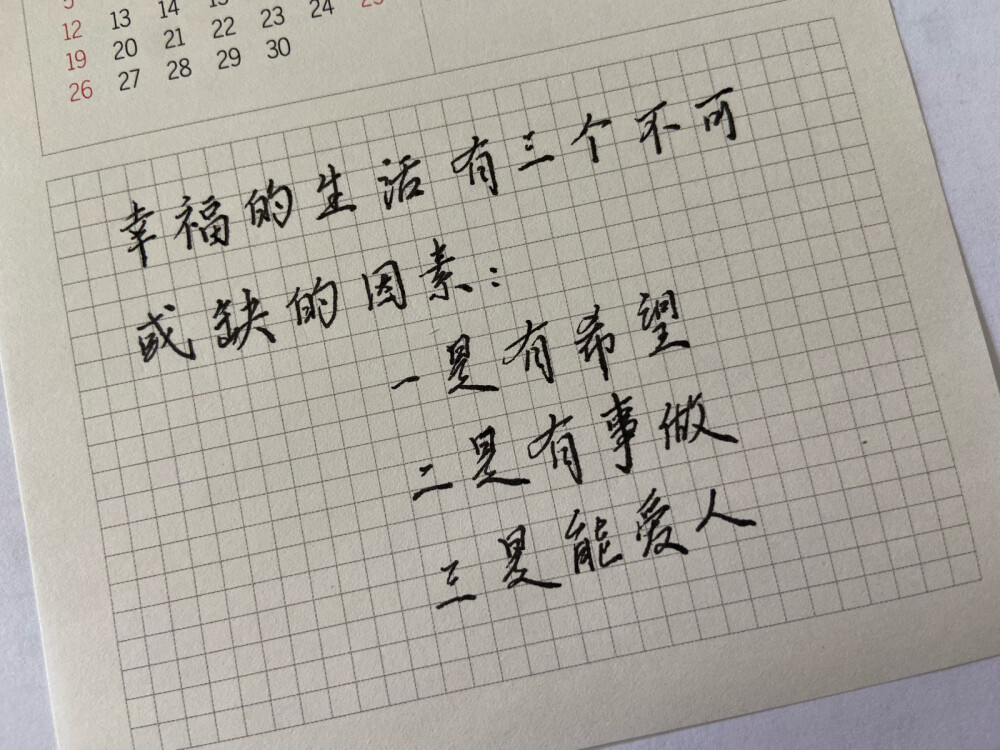 5
12 13 14 15 23 24 25
19 20 21 22 23 24
26 27 28 29 30
幸福的生活有三个不可
或缺的因素:
一是有希望
二是有事做
三是能爱人